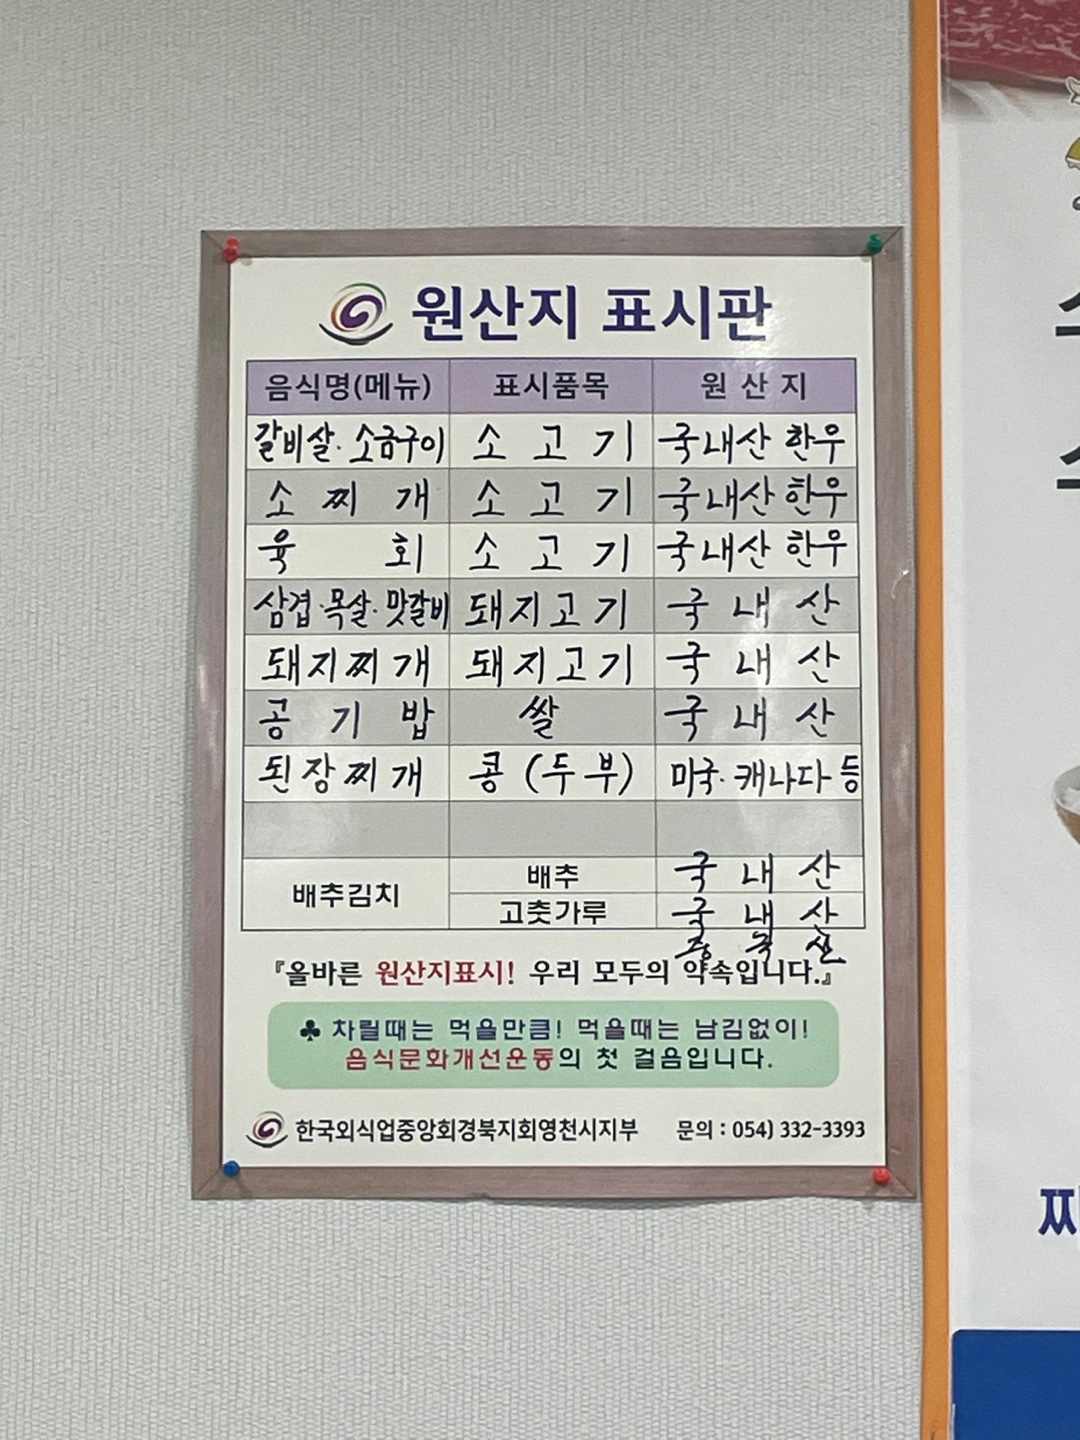 원산지 표시판
음식명(메뉴) 표시품목 원 산 지
갈비살·소금구이 소 고 기 국내산 한우
소 찌 개 소 고 기 국내산 한우
육 회 소 고 기 국내산 한우
삼겹·목살·맛갈비 돼지고기 국 내 산
돼지찌개 돼지고기 국 내 산
공 기 밥 쌀 국 내 산
된장찌개 콩 (두부) 미국·캐나다 등
배추김치 배추 국 내 산
고춧가루 국 내 산
중 국 산
『올바른 원산지표시! 우리 모두의 약속입니다.』
♣ 차릴때는 먹을만큼! 먹을때는 남김없이!
음식문화개선운동의 첫 걸음입니다.
한국외식업중앙회경북지회영천시지부 문의 : 054) 332-3393